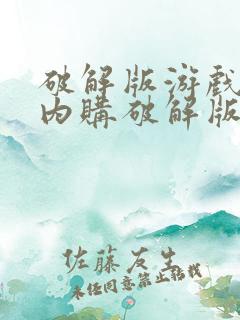 破解版游戏
内購破解版
佐藤友生
未经同意禁止转载